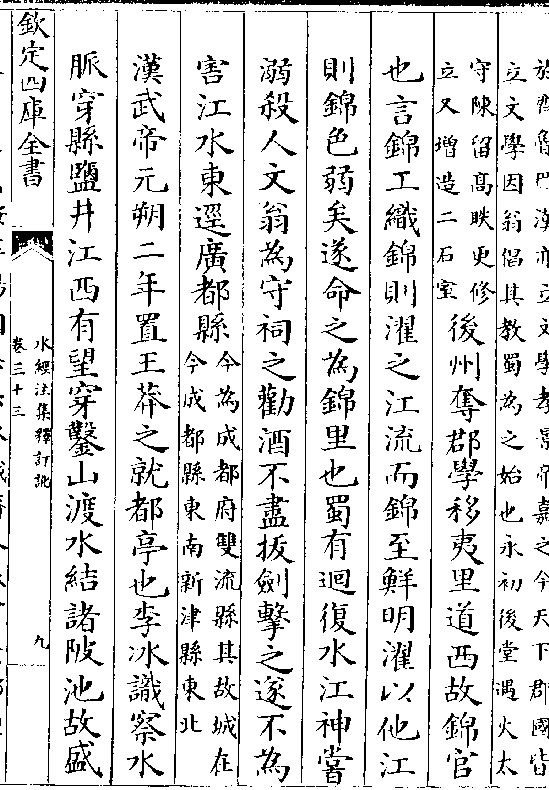 於齊魯巴漢亦立文學孝景帝嘉之令天下郡國皆
立文學因翁倡其教蜀為之始也永初後堂遇火太
守陳留高眹更修
立又增造二石室
後州奪郡學移夷里道西故錦官
也言錦工織錦則濯之江流而錦至鮮明濯以他江
則錦色弱矣遂命之為錦里也蜀有迴復水江神嘗
溺殺人文翁為守祠之勸酒不盡拔劍擊之遂不為
害江水東逕廣都縣
今為成都府雙流縣其故城在
今成都縣東南新津縣東北
漢武帝元朔二年置王莽之就都亭也李冰識察水
脈穿縣鹽井江西有望穿鑿山渡水結諸陂池故盛
欽定四庫全書
水經注集釋訂訛
卷三十三
九